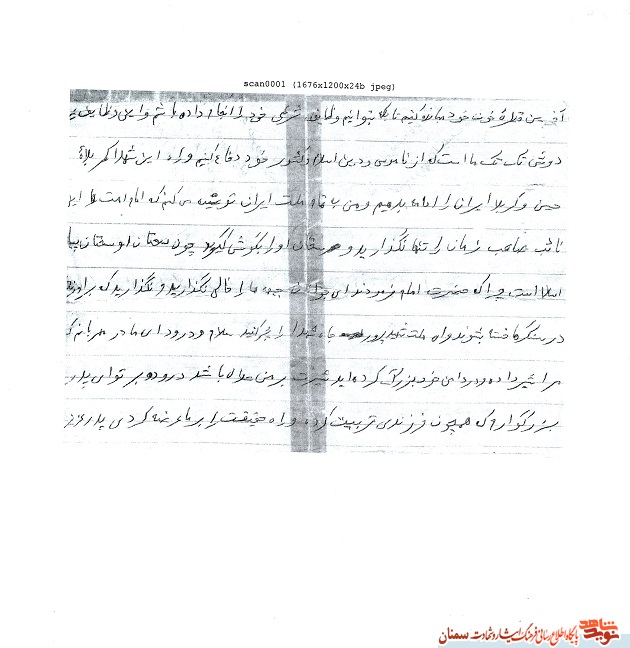 scan0001 (1676x1200x24b jpeg)
آخرین قطره خون خود مبارزه کنیم تا بتوانیم وظایف شرعی خود را انجام داده باشیم و این وظایف بر
دوش تک تک ما است که از ناموس و دین اسلام و کشور خود دفاع کنیم و راه این شهدا کربلای
حسین و کربلا ایران را ادامه بدهیم و من به تمام ملت ایران توصیه می کنم که امام امت ما این
نائب صاحب زمان را تنها نگذارید و سخنان او را بگوش گیرید چون سخنان او سخنان
اسلام است چرا که حضرت امام فرمودند ای جوانان جبهه ها را خالی نگذارید و نگذارید که برادران
در سنگرها خسته بشوند و راه ملت شهید پرور شهدا را پر کنید سلام و درود ای مادر مهربانم که
مرا شیر داده و مرا خود بزرگ کرده اید شیرت بر من حلال باشد درود بر تو ای پدر
بزرگوارم که همچون فرزندی تربیت کرده و راه حقیقت را بر ما عرضه کردی پدر عزیز
نوید شاهد
پایگاه اطلاع رسانی فرهنگ ایثار و شهادت سمنان